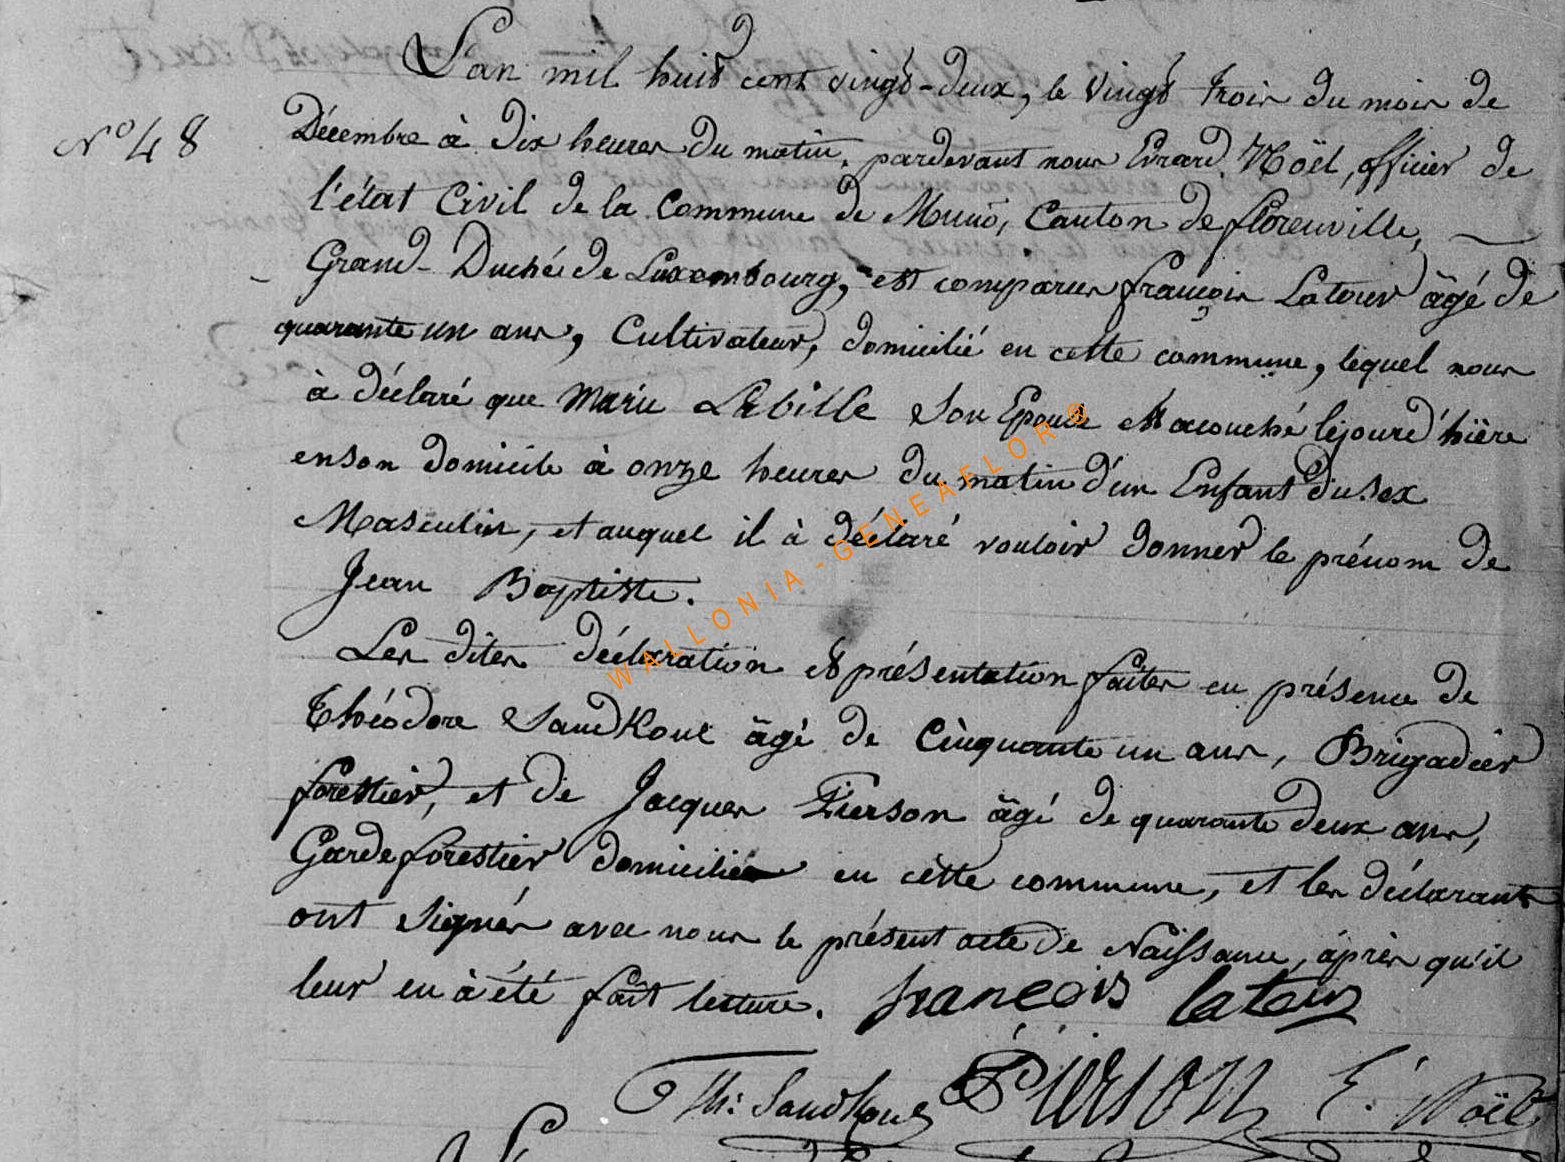 L'an mil huit cent vingt-deux, le vingt trois du mois de
N° 48
Décembre à dix heures du matin, pardevant nous Evrard Noël, officier de
l'état Civil de la Commune de Muno, Canton de florenville,
Grand-Duché de Luxembourg, est comparus françois Latour âgé de
quarante un ans, Cultivateur, domicilié en cette commune, lequel nous
à déclaré que Marie Lebille son Epouse est acouché lejourd'hière
enson domicile à onze heures du matin d'un Enfant du sex
Masculin, et auquel il à déclaré vouloir donner le prénom de
Jean Baptiste.
Les dites déclaration et présentation faites en présence de
Théodore Sandkoul âgé de Cinquante un ans, Brigadier
forestier, et de Jacques Pierson âgé de quarante deux ans,
Garde forestier domiciliés en cette commune, et les déclarants
ont signés avec nous le présent acte de Naissance, après qu'il
leur en à été fait lecture. francois latour
Th: Sandkoul Pierson E. Noël
WALLONIA - GENEAFLOR ®